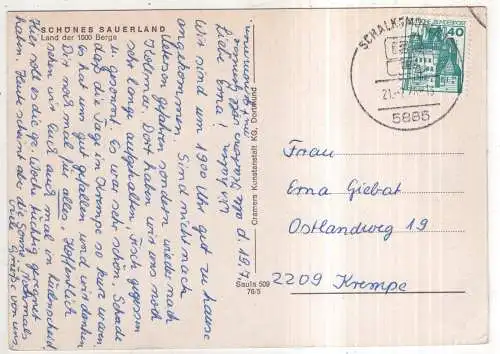 SCHÖNES SAUERLAND
Land der 1000 Berge
d. 19.7.
Liebe Erna!
Wir sind um 19 00 Uhr gut zu hause
angekommen. Sind nicht nach
gefahren sondern wieder nach
Dort haben wir uns noch
sehr lange aufgehalten, Fisch gegessen
u. gesonnt. Es war sehr schön. Schade
daß die Tage in Krempe so kurz waren.
Es hat uns gut gefallen und wir danken
Dir noch mal für alles. Hoffentlich
sehn wir Euch auch mal in Lüdenscheid
Hier soll es die ge. Woche tüchtig geregnet
haben. Heute scheint aber die Sonne. Nochmals
viele Grüße von uns
Cramers Kunstanstalt KG, Dortmund
Saula 509
76/5
SCHALKSMÜ
5885
DEUTSCHE BUNDESPOST
40
Frau
Erna Giebat
Ostlandweg 19
2209 Krempe